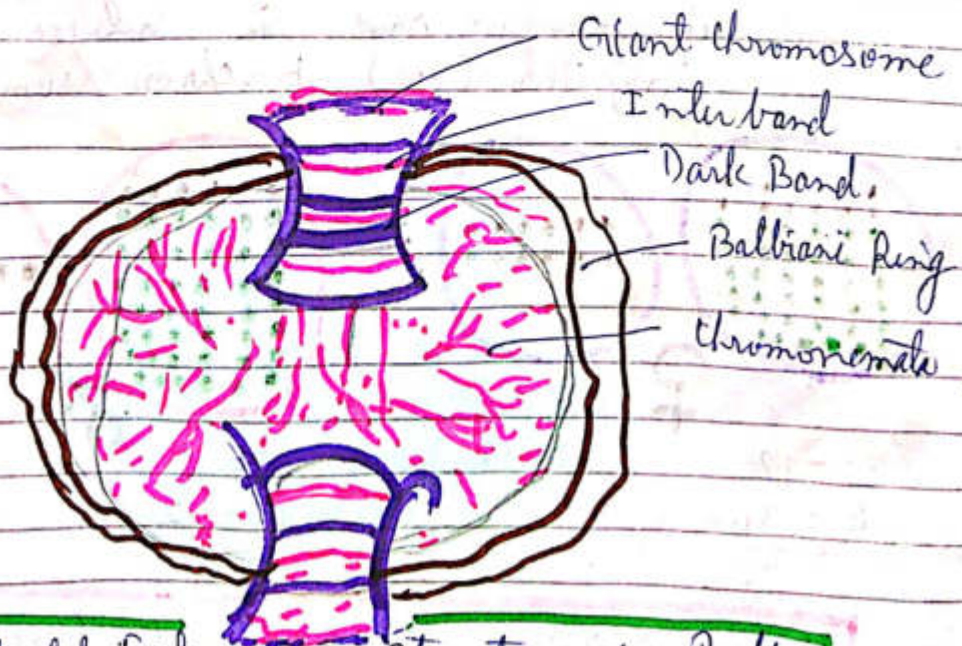 Giant Chromosome
Inter band
Dark Band.
Balbiani Ring
Chromonemata